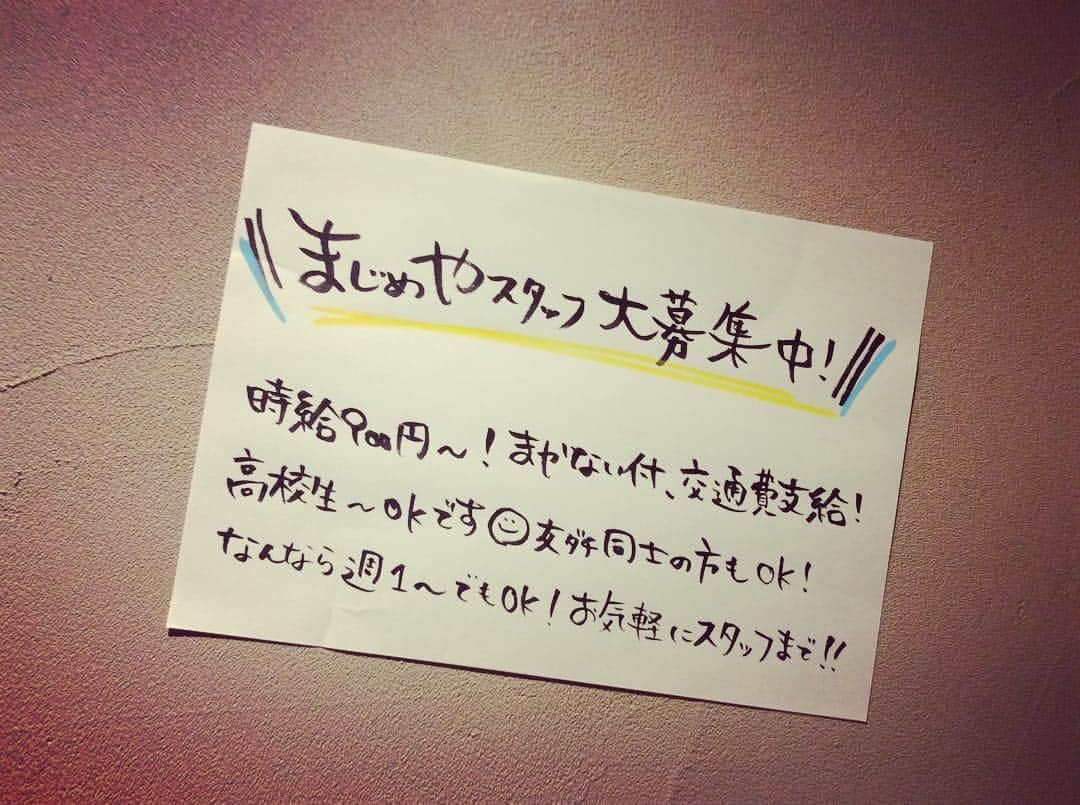 \\まじめやスタッフ大募集中!//
時給900円〜!まかない付、交通費支給!
高校生〜OKです☺友ダチ同士の方もOK!
なんなら週1〜でもOK!お気軽にスタッフまで!!